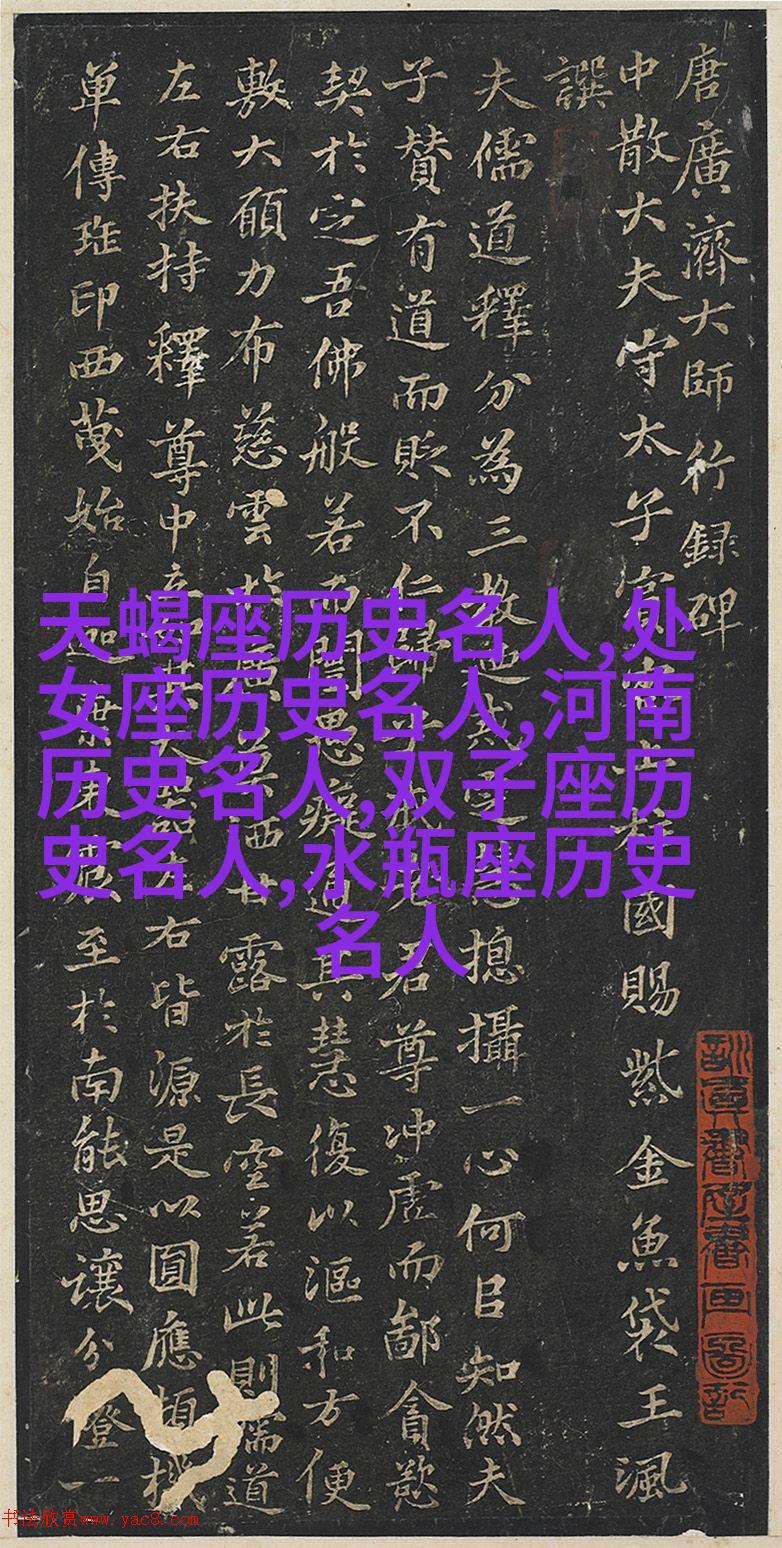 唐廣濟大師行録碑
中散大夫守太子宮 柱國賜紫金魚袋王渢
譔
夫儒道釋分為三教也或 摠攝一心何㠯知然夫
子賛有道而貶不仁歸于 君尊冲虛而鄙貪慾
契於定吾佛般若而開愚癡道具慧復以漚和方便
敷大願力布慈雲於 洒甘露於長空若此則儒道
左右扶持釋尊中 左右皆源是以圓應頓機
單傳 印西 始自迦 東 至於南能思讓分燈一
天蝎座历史名人,处
女座历史名人,河南
历史名人,双子座历
史名人,水瓶座历史
名人
书法欣赏www.yac8.com